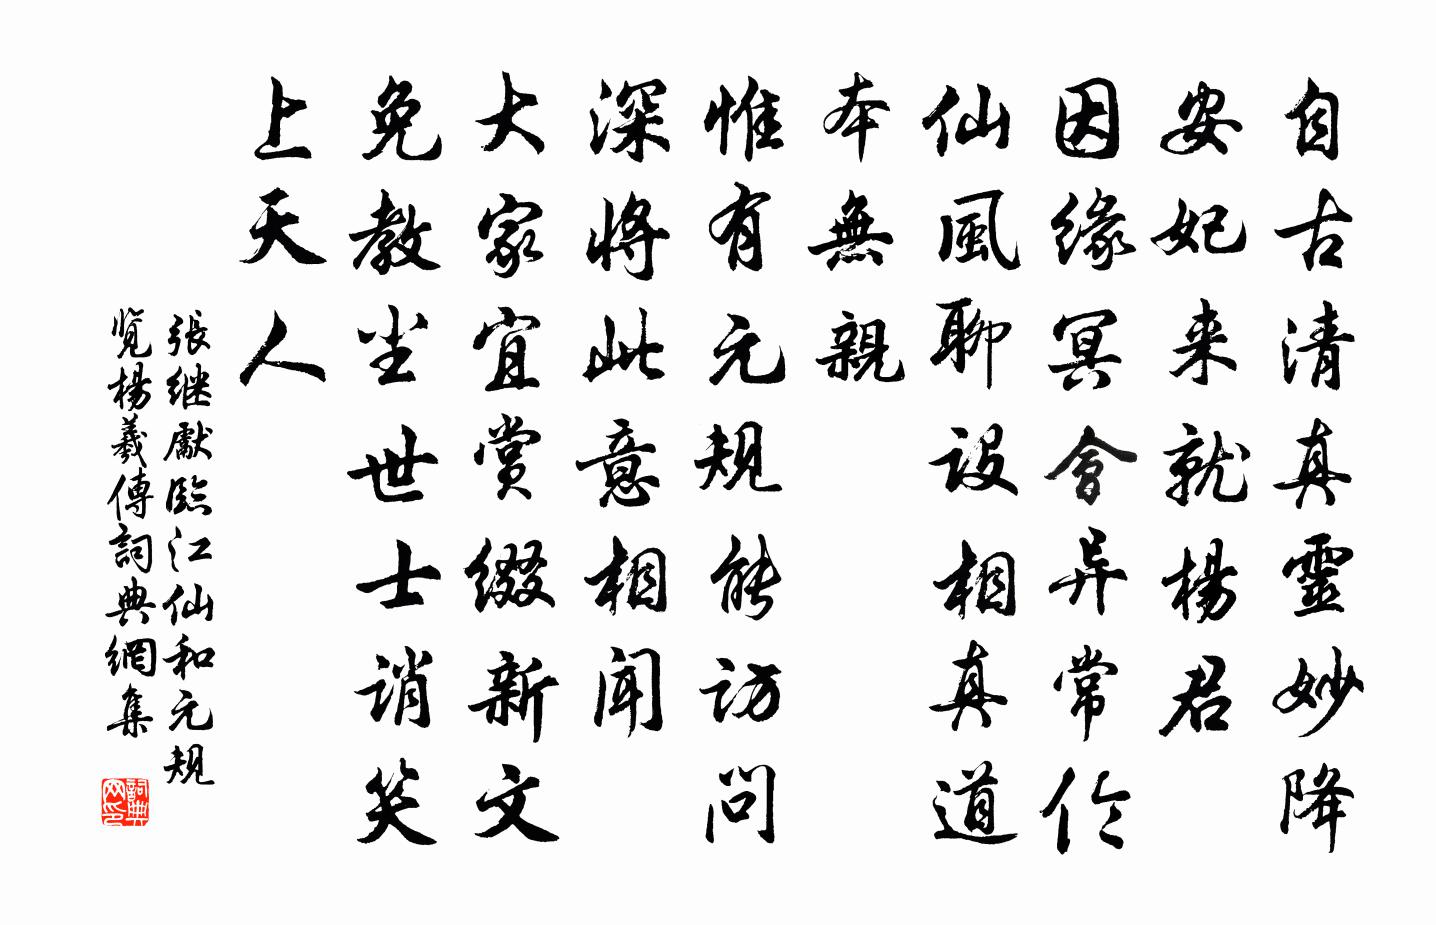 自古清真靈妙降
安妃来就楊君
因缘冥會异常伦
仙風聊設相真道
本無親
惟有元規能訪問
深將此意相闻
大家宜賞缀新文
免教尘世士誚笑
上天人
張继獻臨江仙和元規
览楊羲傳詞典網集
詞典网印